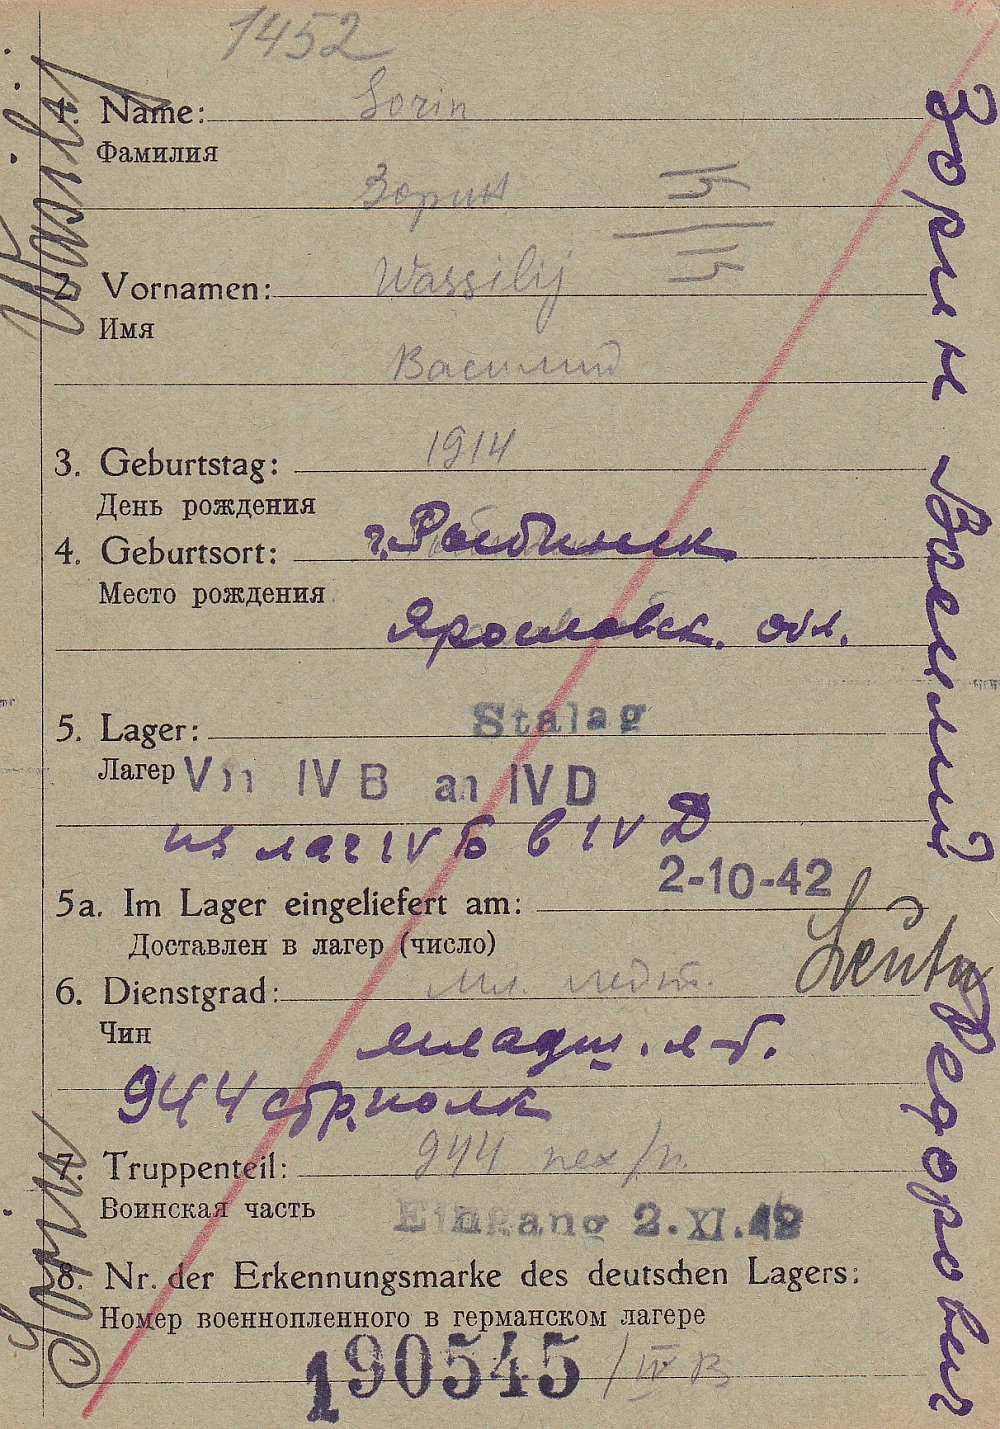 1452
1. Name: Sorin
Фамилия
Зорин
IV
IV
2. Vornamen: Wassilij
Имя
Василий
3. Geburtstag: 1914
День рождения
4. Geburtsort: г. Рыбинск
Место рождения
Ярославск. обл.
5. Lager: Stalag
Лагерь Von IV B an IV D
из лаг IV Б в IV Д
2-10-42
5a. Im Lager eingeliefert am:
Доставлен в лагер (число)
Leutn
6. Dienstgrad: мл. лейт.
Чин
младш. л-т.
944 стр. полк
7. Truppenteil: 944 пех/п.
Воинская часть
Eingang 2. XI. 42
8. Nr. der Erkennungsmarke des deutschen Lagers:
Номер военнопленного в германском лагере
190545 / IV B
Sorin Wasilij
Зорин Василий Федорович